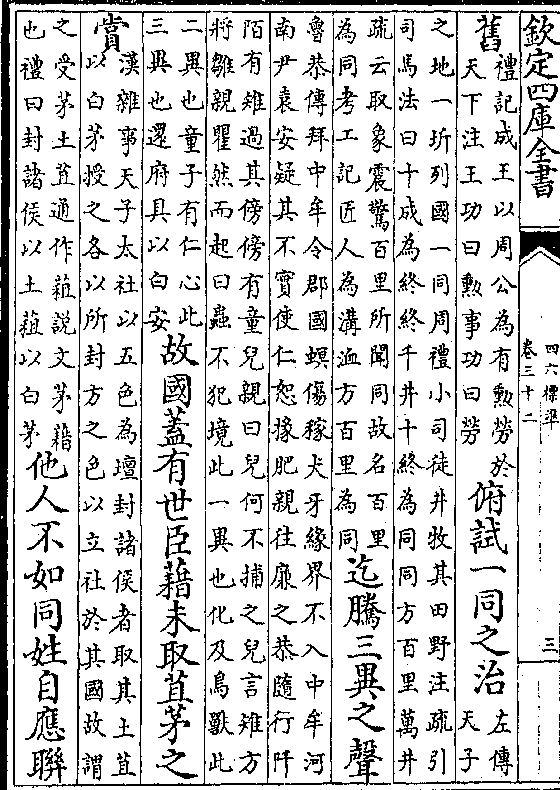 欽定四庫全書
四六標準
卷三十二
三
舊
禮記成王以周公為有勲勞於
天下注王功曰勲事功曰勞
俯試一同之治
左傳
天子
之地一圻列國一同周禮小司徒井牧其田野注疏引
司馬法曰十成為終終千井十終為同同方百里萬井
疏云取象震驚百里所聞同故名百里
為同考工記匠人為溝洫方百里為同
迄騰三異之聲
魯恭傳拜中牟令郡國螟傷稼犬牙緣界不入中牟河
南尹袁安疑其不實使仁恕掾肥親往廉之恭隨行阡
陌有雉過其傍傍有童兒親曰兒何不捕之兒言雉方
將雛親瞿然而起曰蟲不犯境此一異也化及鳥獸此
二異也童子有仁心此
三異也還府具以白安
故國蓋有世臣藉未取苴茅之
賞
漢雜事天子太社以五色為壇封諸侯者取其土苴
以白茅授之各以所封方之色以立社於其國故謂
之受茅土苴通作蒩説文茅藉
也禮曰封諸侯以土蒩以白茅
他人不如同姓自應聯